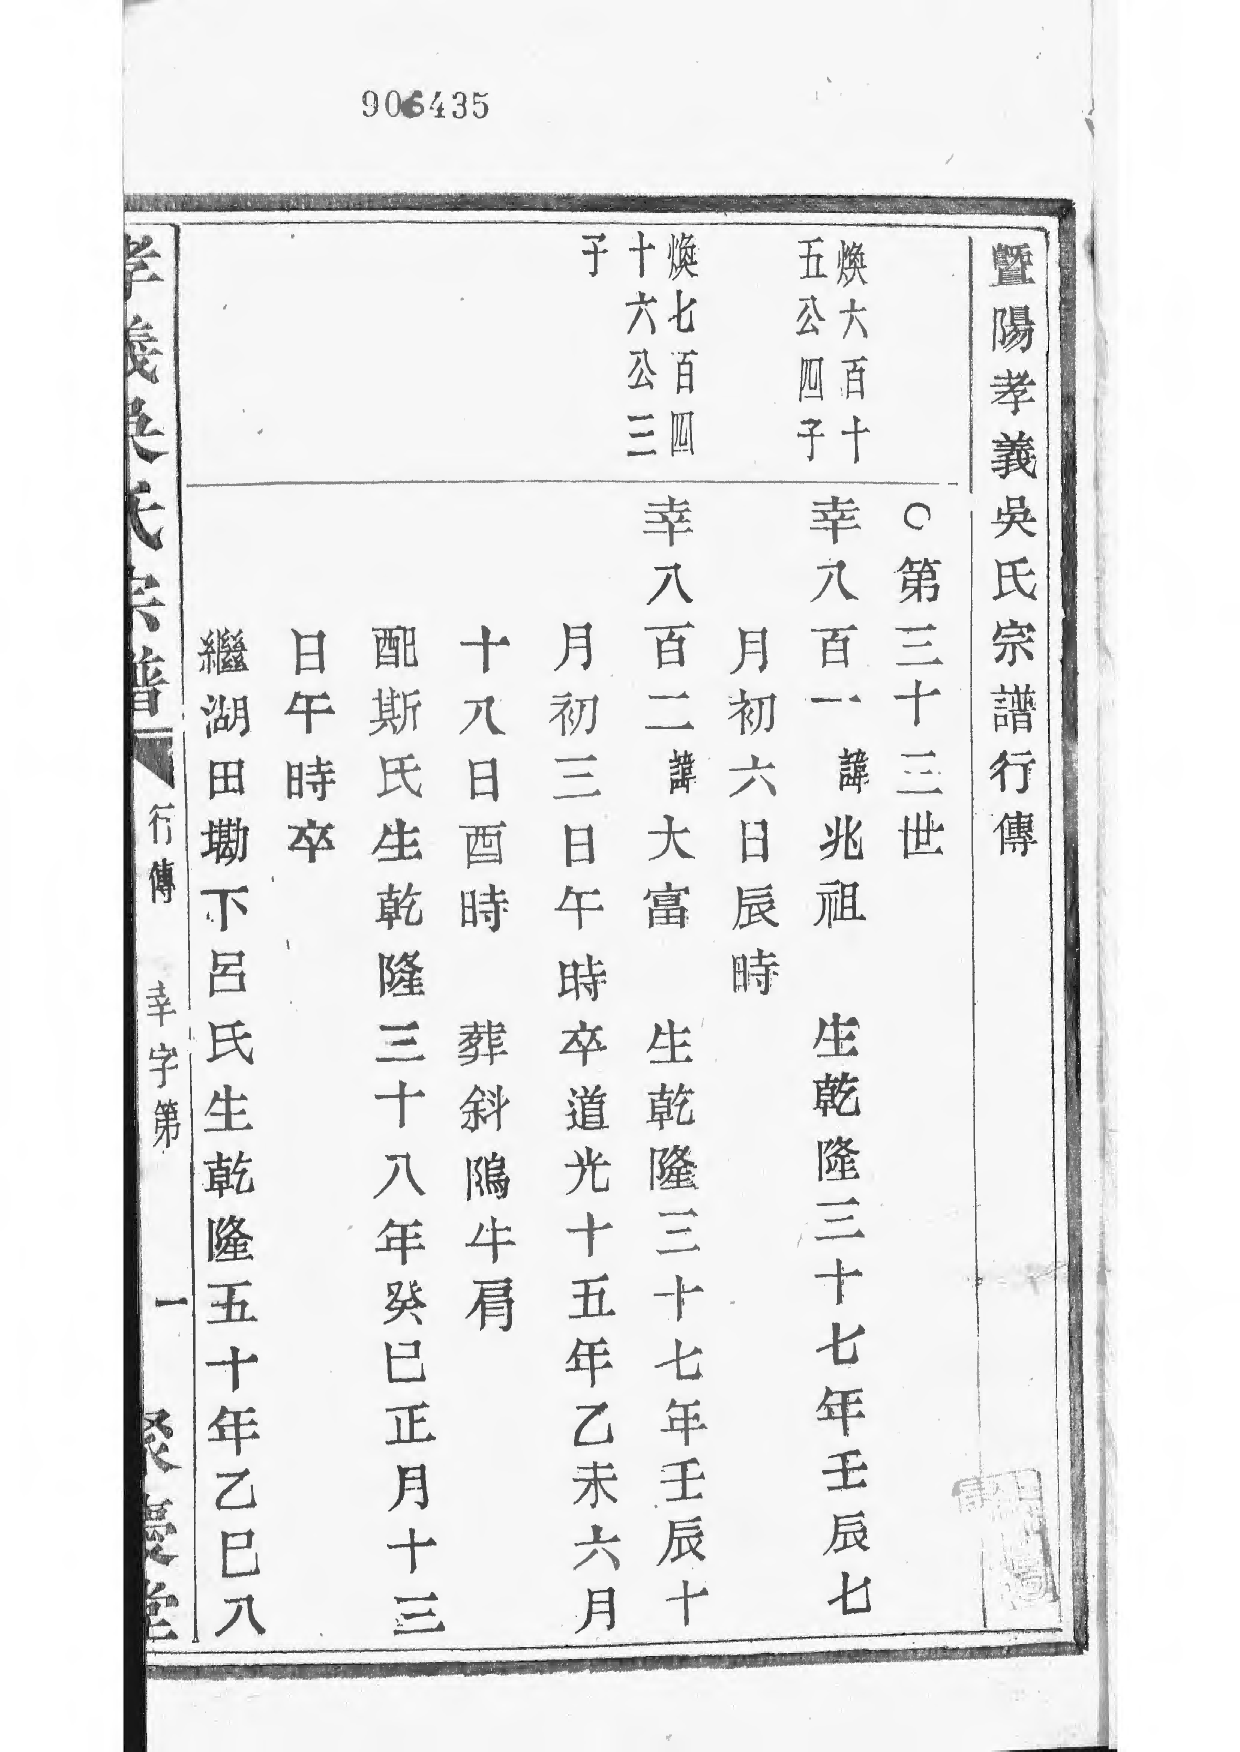 906435
暨陽孝義吳氏宗譜行傳
○第三十三世
煥六百十
五公四子
幸八百一 諱兆祖 生乾隆三十七年壬辰七
月初六日辰時
煥七百四
十六公三
子
幸八百二 諱大富 生乾隆三十七年壬辰十
月初三日午時卒道光十五年乙未六月
十八日酉時 葬斜隝牛肩
配斯氏生乾隆三十八年癸巳正月十三
日午時卒
繼湖田墈下呂氏生乾隆五十年乙巳八
孝義吳氏宗譜 行傳 幸字第 一 聚慶堂